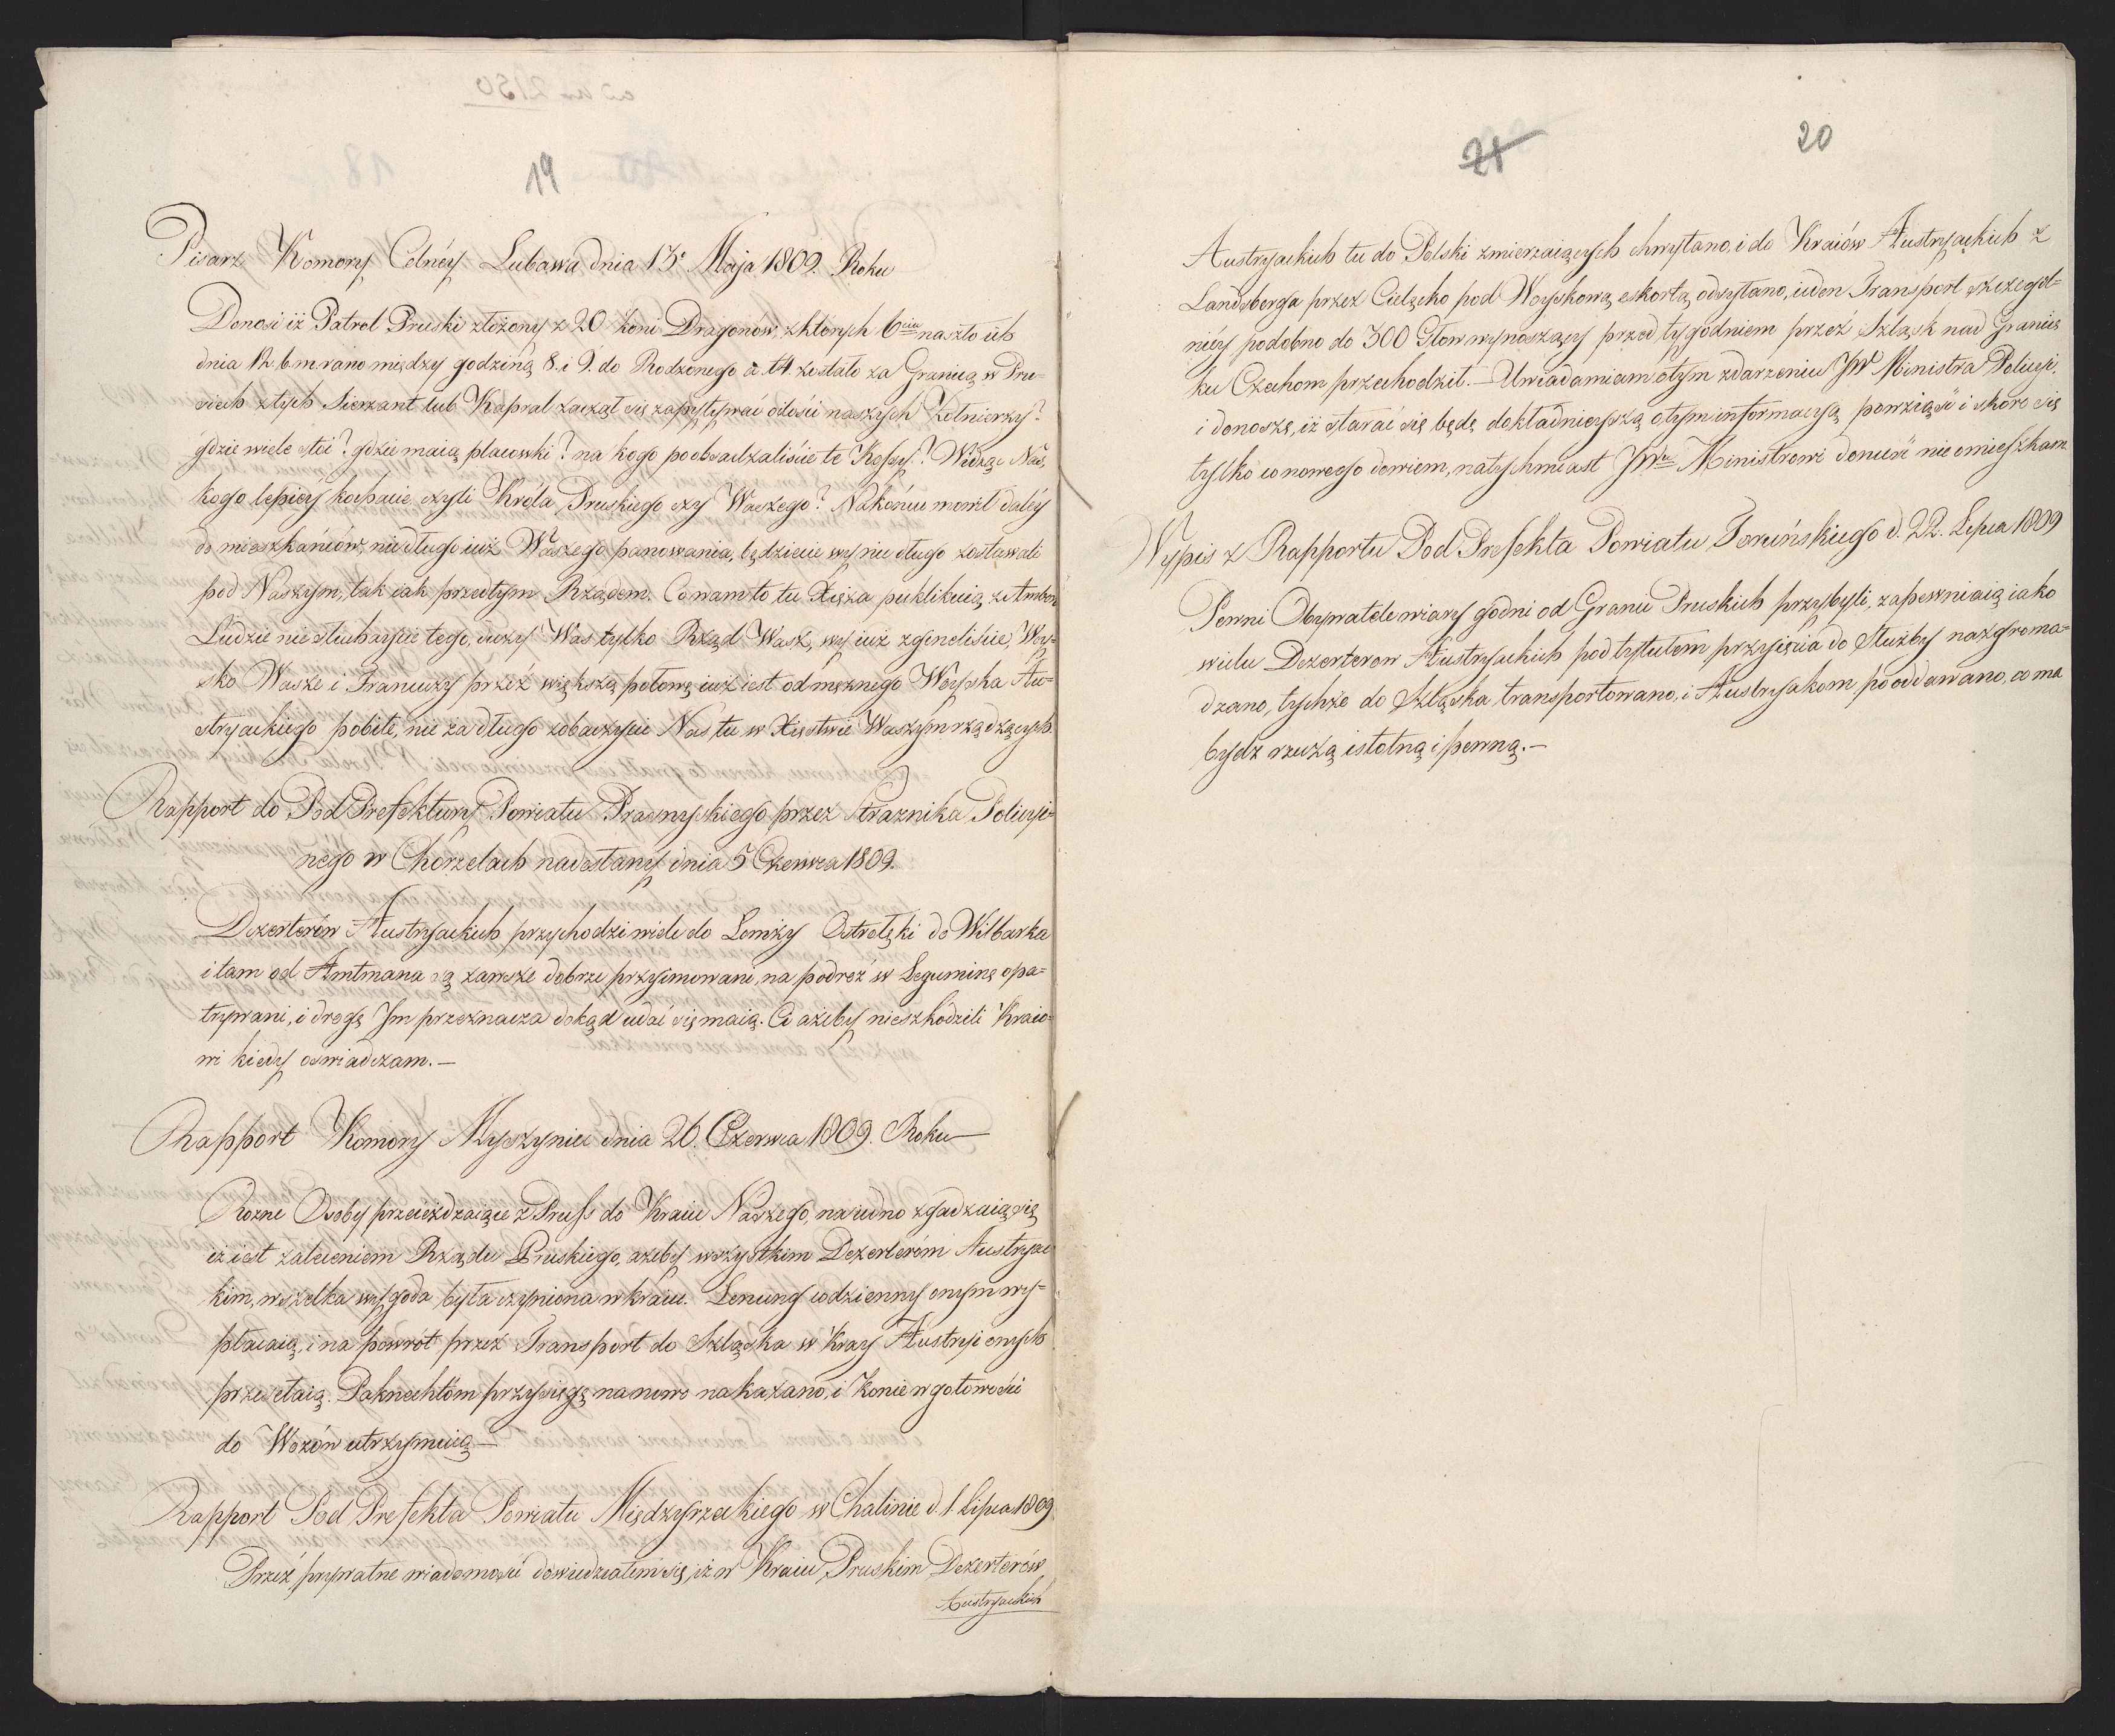 19
Pisarz Komory Celnéy Lubawa dnia 13º Maja 1809. Roku
Donosi iż Patrol Pruski złożony z 20 koni Dragonów, z których 6ciu naszło ich
dnia 12. b. m. rano między godziną 8. i 9. do Rodzonego a 14. zostało za Granicą w Pru-
siech z tych Sierżant lub Kapral zaczął się zapytywać o ilości naszych Żołnierzy?
gdzie wiele stoi? gdzie maią placowki? na kogo poobsadzaliście te Kossy? Widząc Nas,
kogo lepiéy kochacie, czyli Króla Pruskiego czy Waszego? Nakońcu mowił daléy
do mieszkańców, nie długo iuż Waszego panowania, będziecie wy nie długo zostawali
pod Naszym, tak iak przedtym Rządem. Co wam to tu Xięża publikuią, ze Ambon
Ludzie nie słuchaycie tego, uczy Was tylko Rząd Wasz, wy iuż zgineliście, Woy-
sko Wasze i Francuzy przéz większą połowę iuż iest od mężnego Woyska Au-
stryackiego pobite, nie za długo zobaczycie Nas tu w Xięstwie Waszym rządzących.
Rapport do Pod Prefektury Powiatu Prasnyskiego przez Straznika Policyi-
nego w Chorzelach nadesłany dnia 5 Czerwca 1809.
Dezerterów Austryackich przychodzi wiele do Łomży Ostrołęki do Wilbarka
i tam od Amtmana są zawsze dobrze przyimowani, na podroż w Leguminę opa-
trywani, i drogę Im przeznacza dokąd udać się maią. Ci ażeby nieszkodzili Kraio-
wi kiedy oswiadczam.—
Rapport Komory Myszyniec dnia 26. Czerwca 1809. Roku—
Rozne Osoby przeieżdzaiące z Pruss do Kraiu Naszego, na iedno zgadzaią się
iż iest zaleceniem Rządu Pruskiego, ażeby wszystkim Dezerteróm Austryac
kim, wszelka wygoda była czyniona w kraiu. Lenung codzienny onym wy-
płacaią, i na powrót przez Transport do Szląska w Kray Austryi onych
przesełaią. Paknechtóm przysięgę na nowo nakazano, i Konie w gotowości
do Wozów utrzymuią—
Rapport Pod Prefekta Powiatu Międzyrzeckiego w Chalinie d. 1 Lipca 1809
Przéz prywatne wiadomości dowiedziałem się, iż w Kraiu Pruskim Dezerterów
Austryackich
21
20
Austryackich tu do Polski zmierzaiących chwytano, i do Kraiów Austryackich z
Landsberga przez Cielęcko pod Woyskową eskortą odsyłano, ieden Transport szczegól-
niéy podobno do 300 Głow wynoszący przed tygodniem przéz Szląsk nad Granicę
ku Czechom przechodził.— Uwiadamiam o tym zdarzeniu JWo Ministra Policyi,
i donoszę, iż starać się będę dokładnieyszą o tym informacyą powziąść i skoro się
tylko co nowego dowiem, natychmiast JWu Ministrowi donieść nie omieszkam
Wypis z Rapportu Pod Prefekta Powiatu Toruńskiego d. 22. Lipca 1809
Pewni Obywatele wiary godni od Granic Pruskich przybyli, zapewniaią iako
wielu Dezerterow Austryackich pod tytułem przyięcia do Służby nazgroma-
dzano, tychże do Szląska transportowano, i Austryakom pooddawano, co ma
bydz rzeczą istotną i pewną.—